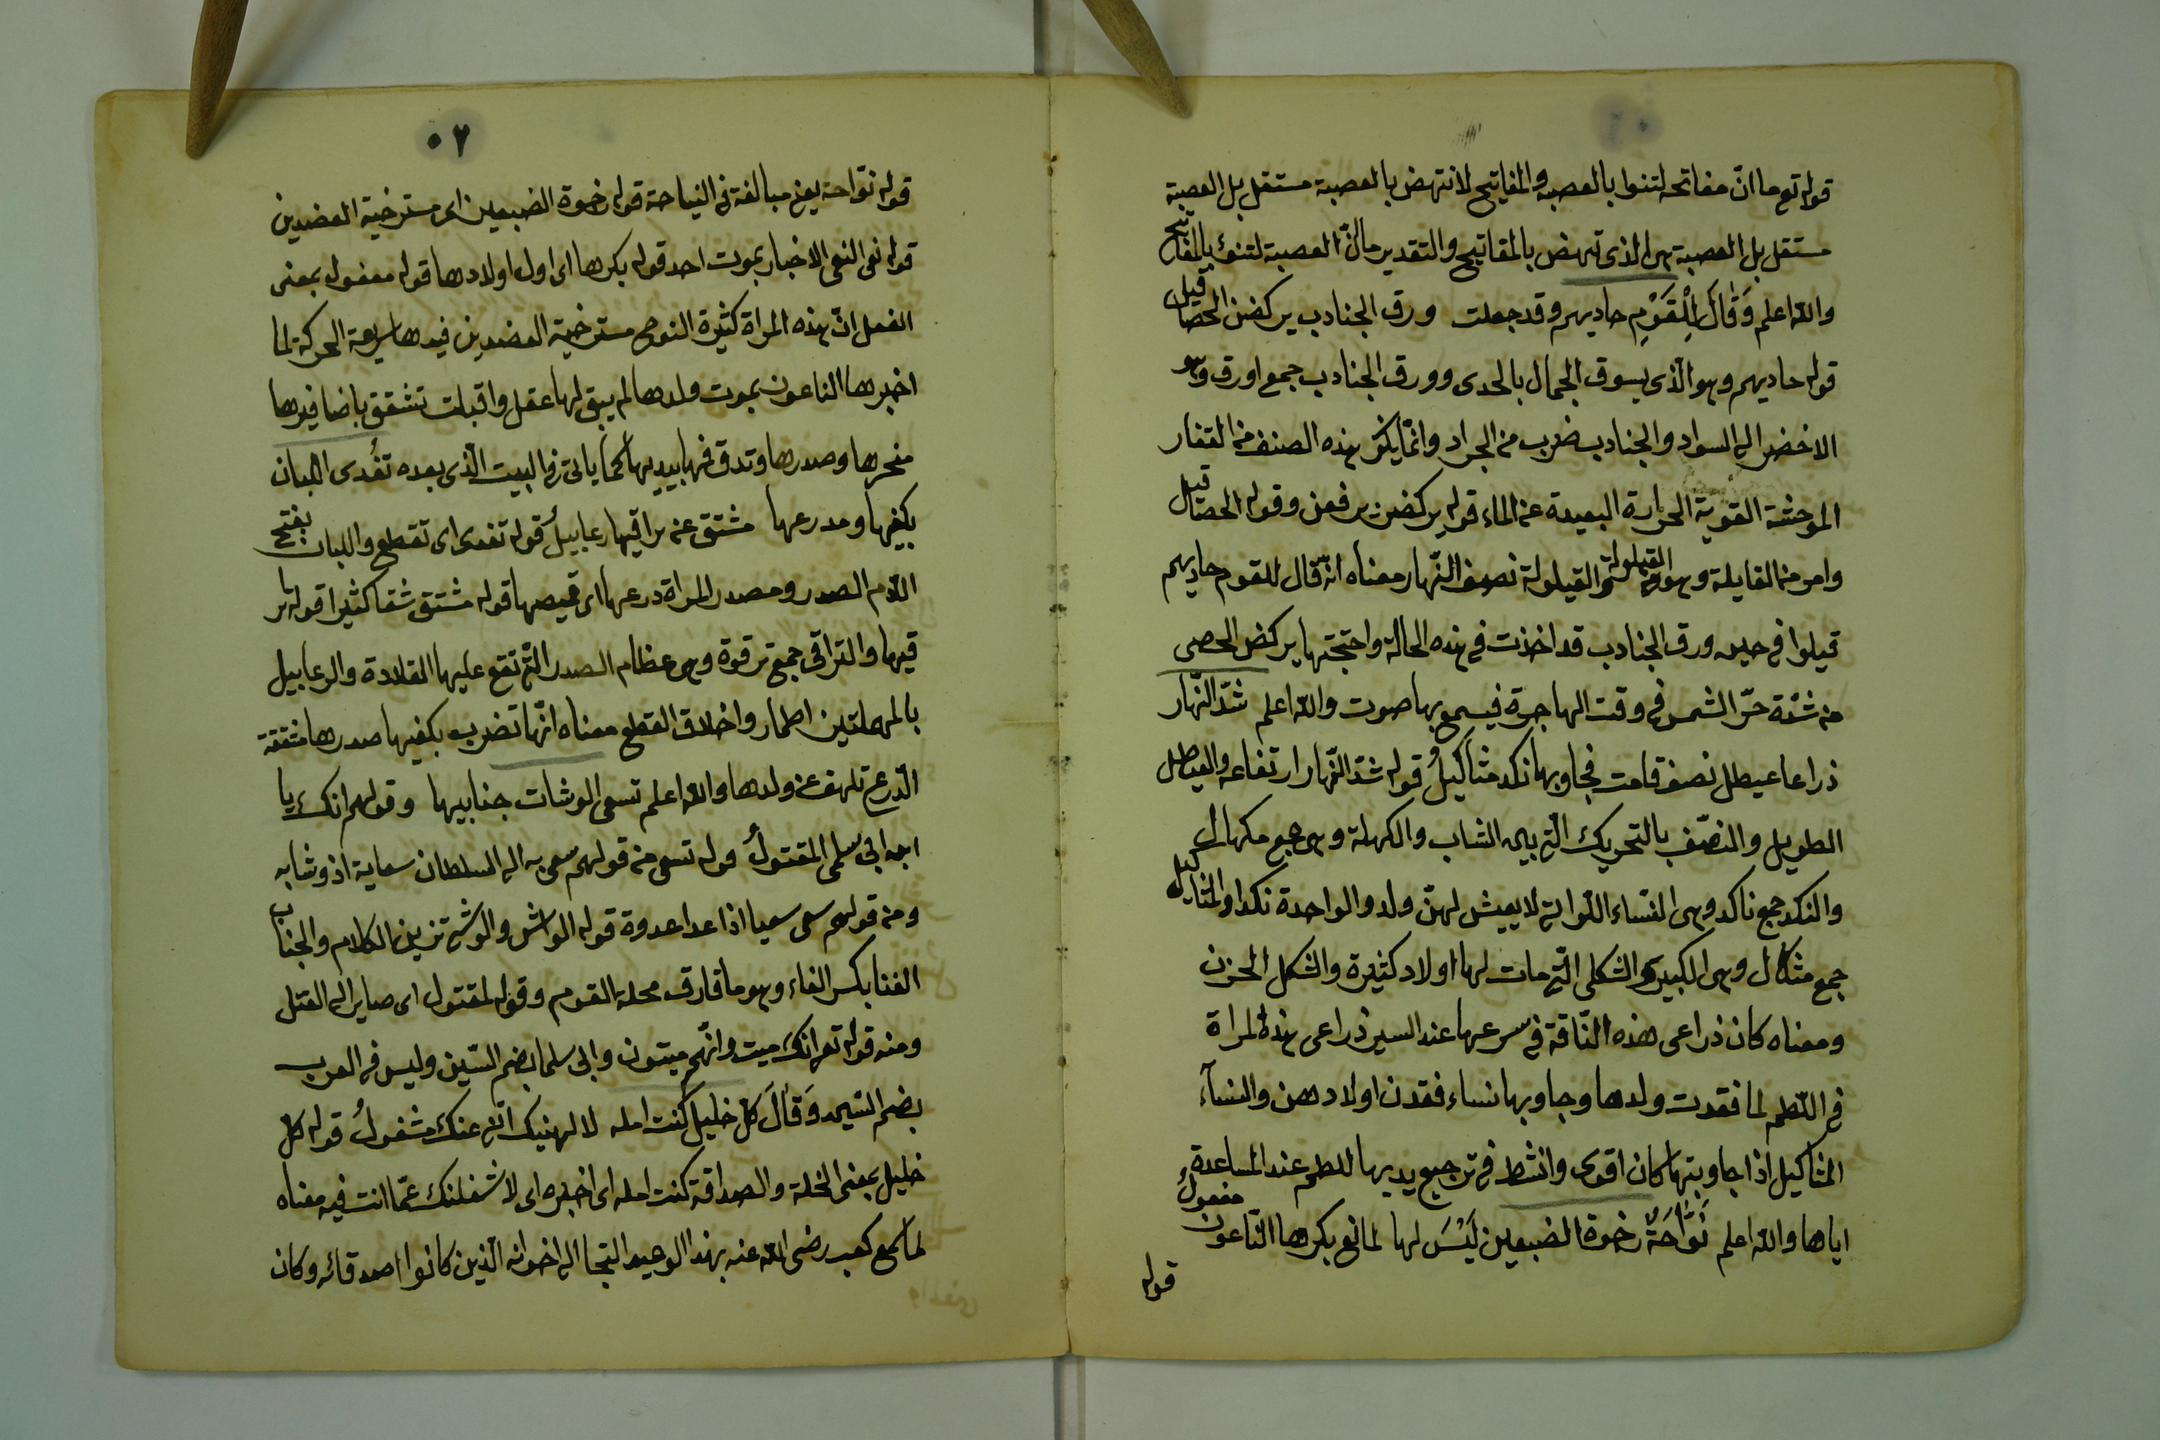 قوله تع ما انّ مفاتحه لتنوا بالعصبه والمفاتيح لا تنهض بالعصبة مستقل بل العصبة
مستقل بل العصبة هى الذى تنهض بالمفاتيح والتقدير ما انّ العصبة لتنوئ بالمفاتيح
والله اعلم وَقَالَ لِلْقَوْمِ حاديهم وقد جعلت ورق الجنادب يركضن الحصا قيلوا
قوله حاديهم وهو الّذى يسوق الجمال بالحدى وورق الجنادب جمع اورق وهو
الاخضر الى السواد والجنادب ضرب من الجراد وانّما يكون هذه الصنف من القفار
الموحشة القوية الحرارة البعيدة عن الماء قوله يركضن يرفعن وقوله الحصا قيلوا
وامر من القايلة وهو من القيلولة والقيلولة نصف النّهار معناه انّه قال للقوم حاديهم
قيلوا فى حين ورق الجنادب قد اخذت فى هذه الحالة واجنحتها يركض الحصى
من شدّة حرّ الشمس فى وقت الهاجرة فيسمع بها صوت والله اعلم شدّ النّهار
ذراعا عيطل نصف قامت فجاوبها نكد مثاكيلُ قوله شدّ النّهار ارتفاعه والعيطل
الطويل والنصّف بالتحريك الّتى بين الشاب والكهلة وهى جمع مكهال
والنكد جمع ناكد وهى النّساء اللّواتى لا يعيش لهنّ ولد والواحدة نكدا والمثاكيل
جمع مثكال وهى الكبيرة الثكلى الّتى مات لها اولاد كثيرة والثكل الحزن
ومعناه كان ذراعى هذه النّاقة فى سرعتها عند السير ذراعى هذه المراة
فى اللّطم لما فقدت ولدها وجاوبها نساء فقدن اولادهن والنسآء
المثاكيل اذا جاوبتها كان اقوى وانشط فى ترجيع يديها للطم عند المساعدة
اياها والله اعلم نَوَّاحَةٌ رخوة الضبعين لَيْسَ لها لما نعى بكرها النّاعون معقول
قوله
٥٢
قوله نوّاحة يعنى مبالغة فى النياحة قوله رخوة الضبعين اى مسترخية العضدين
قوله نعى النعى الاخبار بموت احد قوله بكرها اى اول اولادها قوله معقول بمعنى
العقل انّ هذه المراة كثيرة النوح مسترخية العضدين فيدها سريعة الحركة لما
اخبرها الناعون بموت ولدها لم يبق لها عقل واقبلت تشقق باضافيرها
منحرها وصدرها وتدق فيها بيديها كما ياتى فى البيت الّذى بعده تفُدى اللبان
بكفيها ومدرعها مشتق عن تراقيها رعابيلُ قوله تفدى اى تقطع واللبان بفتح
اللّام الصدر ومصدر المراة درعها اى قميصها قوله مشتق شقا كثيرا قوله ترا
قيها والتراقى جمع ترقوة وهى عظام الصدر الّتى تقع عليها القلادة والرعابيل
بالمهملتين اطمار واخلاق القطع معناه انّها تضرب بكفيها صدرها مشققة
الّدرع تلهف عن ولدها والله اعلم تسعى الوشات جنابيها وقولهم انك يا
ابن ابى سلمى لمقتولُ قوله تسعى من قولهم سعى به الى السلطان سعاية اذ وشا به
ومن قولهم سعى سعيا اذا عدا عدوة قوله الواشى والوشى تزيين الكلام والجناب
الفنا بكسر الفاء وهو ما قارق محلة القوم وقوله لمقتول اى صاير الى القتل
ومنه قوله تعر انك ميت وانّهم ميتون وابى سلما بضم السّين وليس فى العرب
بضم السّين وَقَالَ كلّ خليل كنت امله لا الهينيك انّى عنك مشغولُ قوله كلّ
خليل بمعنى الخلة والصداقة كنت امله اى اخيّره اى لا شغلنك عمّا انت فيه معناه
لما سمع كعب رضى الله عنه بهذا الوعيد التجا الى اخوانه الّذين كانوا اصدقائه وكان